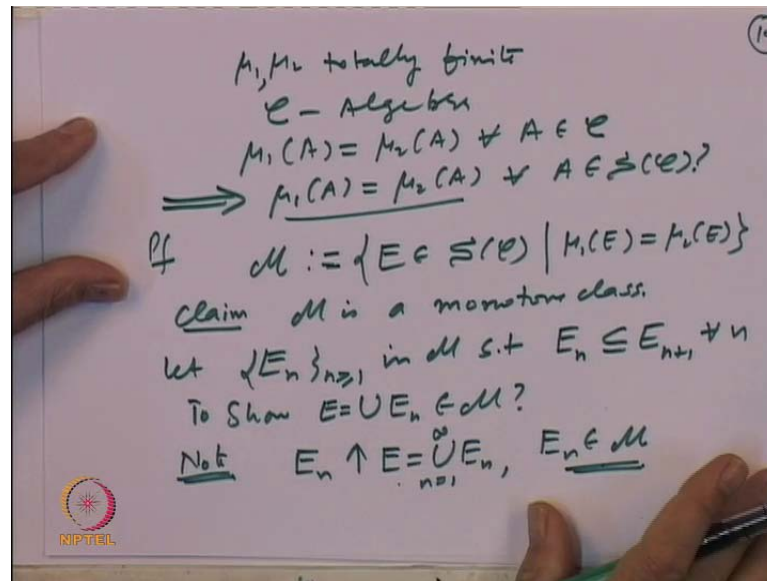 μ₁, μ₂ totally finite
𝒞 - Algebra
μ₁(A) = μ₂(A) ∀ A ∈ 𝒞
⟹ μ₁(A) = μ₂(A) ∀ A ∈ S(𝒞)?
Pf M := {E ∈ S(𝒞) | μ₁(E) = μ₂(E)}
Claim M is a monotone class.
Let {Eₙ}ₙ≥₁ in M s.t Eₙ ⊆ Eₙ₊₁ ∀ n
To Show E = ∪ Eₙ ∈ M?
Note Eₙ ↑ E = ∪ₙ₌₁^∞ Eₙ, Eₙ ∈ M
NPTEL